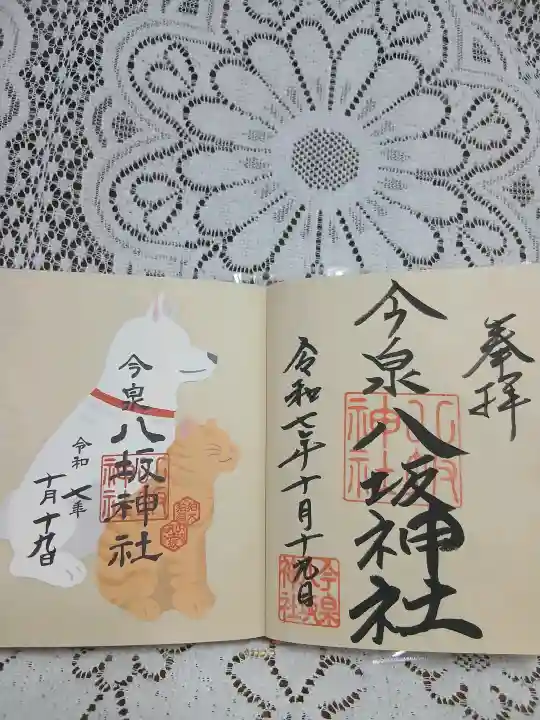 奉拝
今泉八坂神社
令和七年十月十九日
今泉
八坂神社
令和
七年
十月十九日